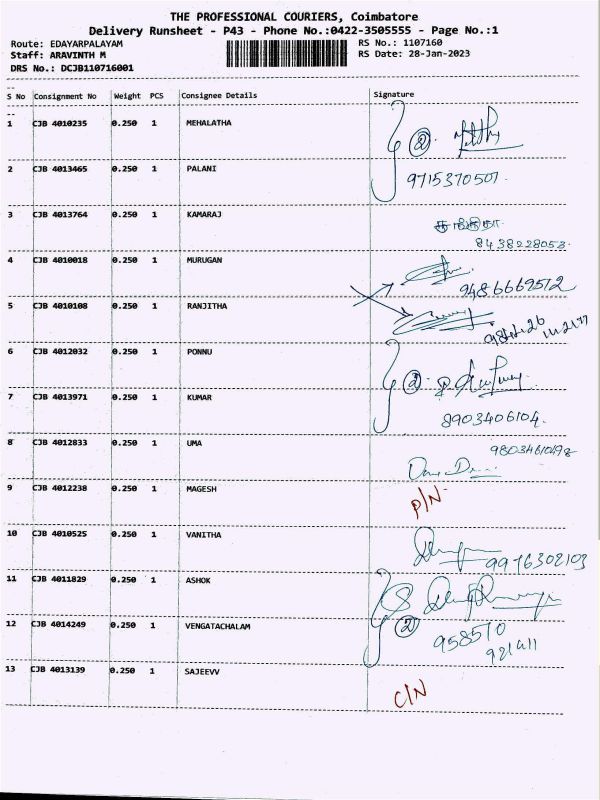 THE PROFESSIONAL COURIERS, Coimbatore
Delivery Runsheet - P43 - Phone No.:0422-3505555 - Page No.:1
Route: EDAYARPALAYAM RS No.: 1107160
Staff: ARAVINTH M RS Date: 28-Jan-2023
DRS No.: DCJB110716001
S No Consignment No Weight PCS Consignee Details Signature
1 CJB 4010235 0.250 1 MEHALATHA
②
2 CJB 4013465 0.250 1 PALANI
9715370507.
3 CJB 4013764 0.250 1 KAMARAJ
8438228053.
4 CJB 4010018 0.250 1 MURUGAN
9486669572
5 CJB 4010108 0.250 1 RANJITHA
6 CJB 4012032 0.250 1 PONNU
②
7 CJB 4013971 0.250 1 KUMAR
8903406104.
8 CJB 4012833 0.250 1 UMA
9 CJB 4012238 0.250 1 MAGESH P/N
10 CJB 4010525 0.250 1 VANITHA
9976302103
11 CJB 4011829 0.250 1 ASHOK
12 CJB 4014249 0.250 1 VENGATACHALAM
②
958570
13 CJB 4013139 0.250 1 SAJEEVV C/N